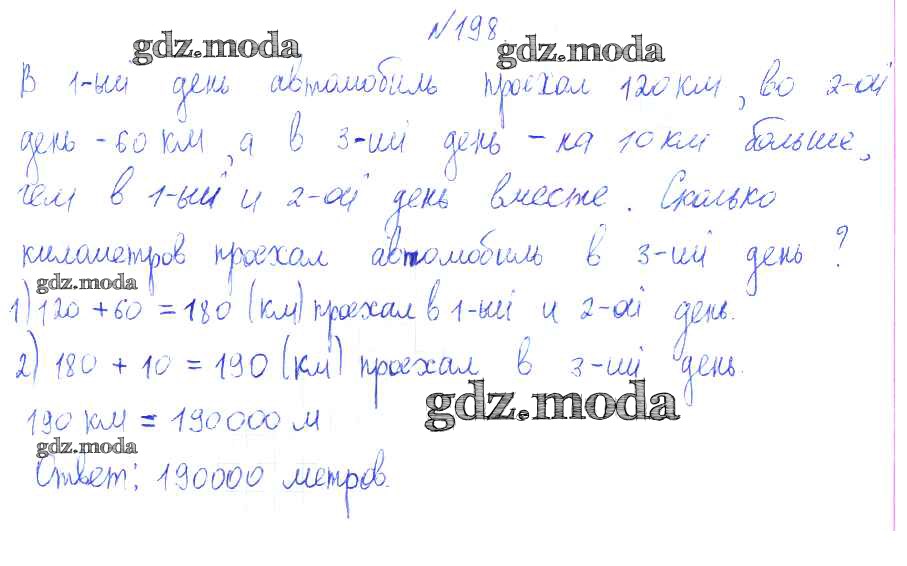 №198
gdz.moda gdz.moda
В 1-ый день автомобиль проехал 120 км, во 2-ой
день - 60 км, а в 3-ий день - на 10 км больше,
чем в 1-ый и 2-ой день вместе. Сколько
километров проехал автомобиль в 3-ий день?
gdz.moda
1) 120 + 60 = 180 (км) проехал в 1-ый и 2-ой день.
2) 180 + 10 = 190 (км) проехал в 3-ий день.
gdz.moda
190 км = 190000 м
gdz.moda
Ответ: 190000 метров.